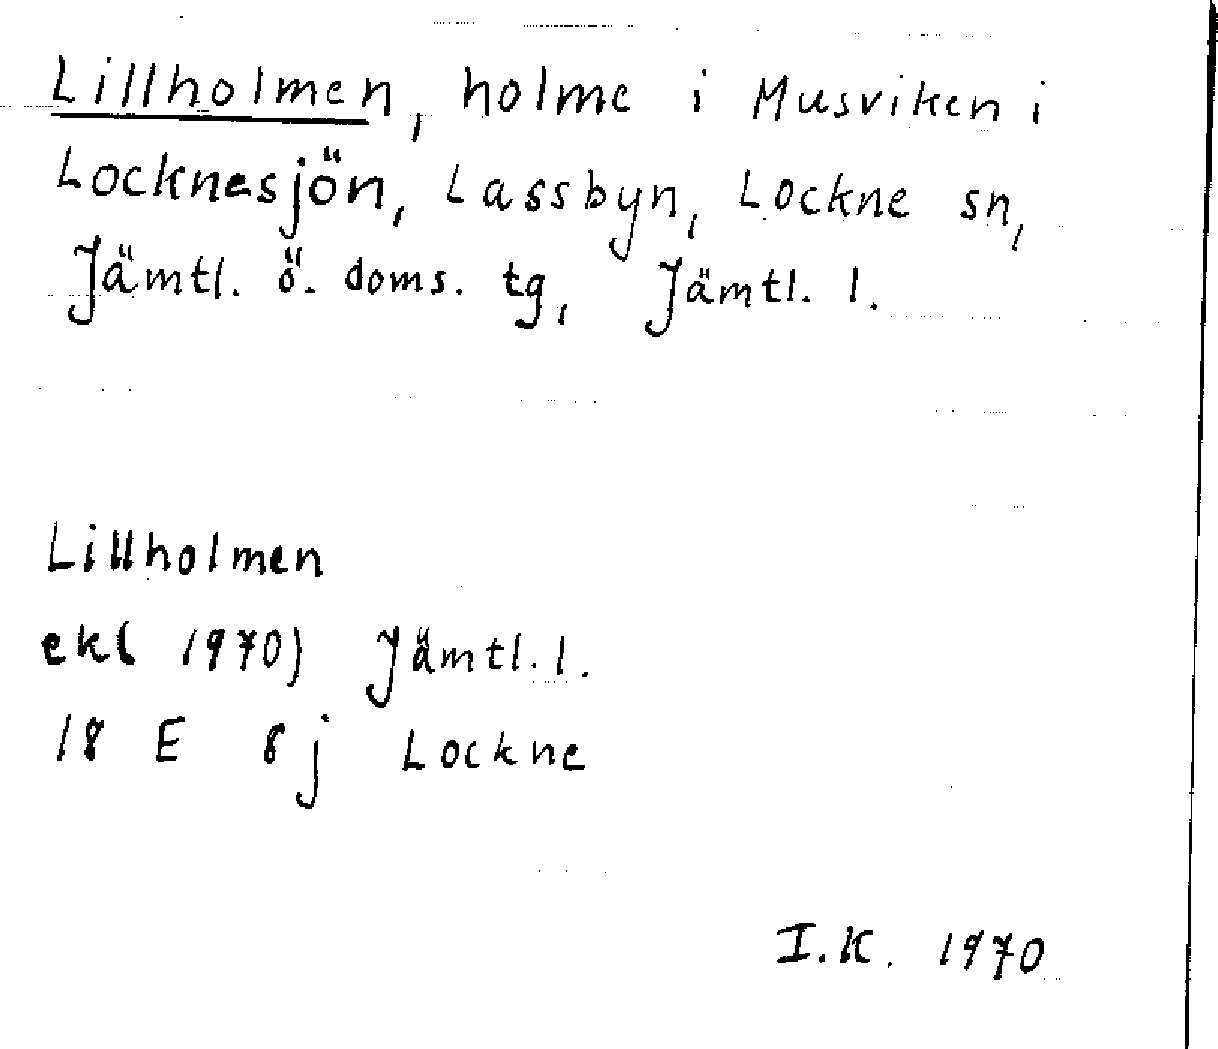 Lillholmen, holme i Musviken i
Locknesjön, Lassbyn, Lockne sn,
Jämtl. ö. doms. tg, Jämtl. l.
Lillholmen
ekl 1970) Jämtl. l.
18 E 8 j Lockne
I.K. 1970